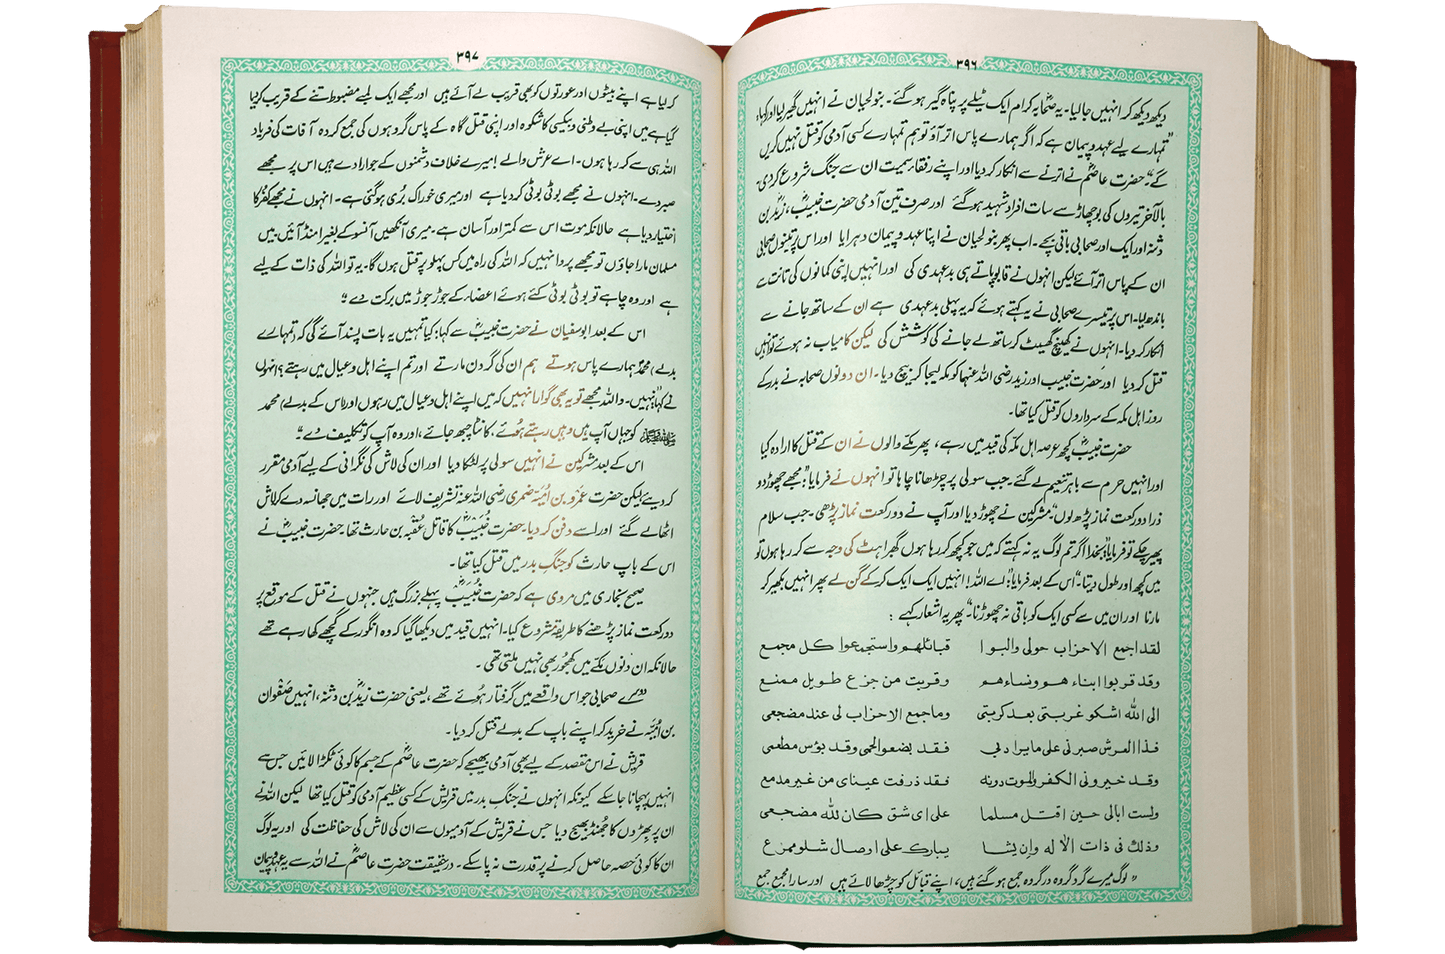 ۳۹۶
دیکھ دیکھ کر انہیں جا لیا۔ یہ صحابہ کرام ایک ٹیلے پر پناہ گیر ہو گئے۔ بنو لحیان نے انہیں گھیر لیا اور کہا:
”تمہارے لیے عہد و پیمان ہے کہ اگر ہمارے پاس اتر آؤ تو ہم تمہارے کسی آدمی کو قتل نہیں کریں
گے“۔ حضرت عاصمؓ نے اترنے سے انکار کر دیا اور اپنے رفقاء سمیت ان سے جنگ شروع کر دی۔
بالآخر تیروں کی بوچھاڑ سے سات افراد شہید ہو گئے اور صرف تین آدمی حضرت خبیبؓ، زیدؓ بن
دثنہ اور ایک اور صحابی باقی بچے۔ اب پھر بنو لحیان نے اپنا عہد و پیمان دہرایا اور اس پر تینوں صحابی
ان کے پاس اتر آئے لیکن انہوں نے قابو پاتے ہی بدعہدی کی اور انہیں اپنی کمانوں کی تانت سے
باندھ لیا۔ اس پر تیسرے صحابی نے یہ کہتے ہوئے کہ یہ پہلی بدعہدی ہے ان کے ساتھ جانے سے
انکار کر دیا۔ انہوں نے کھینچ گھسیٹ کر ساتھ لے جانے کی کوشش کی لیکن کامیاب نہ ہوئے تو انہیں
قتل کر دیا اور حضرت خبیب اور زید رضی اللہ عنہما کو مکہ لیجا کر بیچ دیا۔ ان دونوں صحابہ نے بدر کے
روز اہل مکہ کے سرداروں کو قتل کیا تھا۔
حضرت خبیبؓ کچھ عرصہ اہل مکہ کی قید میں رہے، پھر مکے والوں نے ان کے قتل کا ارادہ کیا
اور انہیں حرم سے باہر تنعیم لے گئے۔ جب سولی پر چڑھانا چاہا تو انہوں نے فرمایا: ”مجھے چھوڑ دو
ذرا دو رکعت نماز پڑھ لوں“، مشرکین نے چھوڑ دیا اور آپ نے دو رکعت نماز پڑھی۔ جب سلام
پھیر چکے تو فرمایا: ”بخدا اگر تم لوگ یہ نہ کہتے کہ میں جو کچھ کر رہا ہوں گھبراہٹ کی وجہ سے کر رہا ہوں تو
میں کچھ اور طول دیتا“۔ اس کے بعد فرمایا: ”اے اللہ! انہیں ایک ایک کرکے گن لے پھر انہیں بکھیر کر
مارنا اور ان میں سے کسی ایک کو باقی نہ چھوڑنا“۔ پھر یہ اشعار کہے :
لقد اجمع الاحزاب حولی والبوا قبائلهم واستجمعوا کل مجمع
وقد قربوا ابناءهم ونساءهم وقربت من جزع طویل ممنع
الی الله اشکو غربتی بعد کربتی وما جمع الاحزاب لی عند مضجعی
فذا العرش صبرنی علی ما یراد بی فقد بضعوا لحمی وقد بؤس مطعمی
وقد خیرونی الکفر والموت دونه فقد ذرفت عینای من غیر مدمع
ولست ابالی حین اقتل مسلما علی ای شق کان لله مضجعی
وذلک فی ذات الاله وان یشا یبارک علی اوصال شلو ممزع
” لوگ میرے گرد گروہ در گروہ جمع ہو گئے ہیں، اپنے قبائل کو چڑھا لائے ہیں اور سارا مجمع جمع
۳۹۷
کر لیا ہے اپنے بیٹوں اور عورتوں کو بھی قریب لے آئے ہیں اور مجھے ایک لمبے مضبوط تنے کے قریب کر دیا
گیا ہے میں اپنی بے وطنی و بیکسی کا شکوہ اور اپنی قتل گاہ کے پاس گروہوں کی جمع کردہ آفات کی فریاد
اللہ ہی سے کر رہا ہوں۔ اے عرش والے! میرے خلاف دشمنوں کے جو ارادے ہیں اس پر مجھے
صبر دے۔ انہوں نے مجھے بوٹی بوٹی کر دیا ہے اور میری خوراک بُری ہو گئی ہے۔ انہوں نے مجھے کفر کا
اختیار دیا ہے حالانکہ موت اس سے کمتر اور آسان ہے۔ میری آنکھیں آنسو کے بغیر امنڈ آئیں۔ میں
مسلمان مارا جاؤں تو مجھے پروا نہیں کہ اللہ کی راہ میں کس پہلو پر قتل ہوں گا۔ یہ تو اللہ کی ذات کے لیے
ہے اور وہ چاہے تو بوٹی بوٹی کئے ہوئے اعضاء کے جوڑ جوڑ میں برکت دے“
اس کے بعد ابوسفیان نے حضرت خبیبؓ سے کہا: کیا تمہیں یہ بات پسند آئے گی کہ تمہارے
بدلے محمدؐ ہمارے پاس ہوتے ہم ان کی گردن مارتے اور تم اپنے اہل و عیال میں رہتے؟ انہوں
نے کہا: ”نہیں۔ واللہ مجھے تو یہ بھی گوارا نہیں کہ میں اپنے اہل و عیال میں رہوں اور (اس کے بدلے) محمد
ﷺ کو جہاں آپ ہیں وہیں رہتے ہوئے، کانٹا چبھ جائے، اور وہ آپ کو تکلیف دے“۔
اس کے بعد مشرکین نے انہیں سولی پر لٹکا دیا اور ان کی لاش کی نگرانی کے لیے آدمی مقرر
کر دیئے لیکن حضرت عمرو بن امیّہ ضمری رضی اللہ عنہ تشریف لائے اور رات میں جھانسہ دے کر لاش
اٹھا لے گئے اور اسے دفن کر دیا۔ حضرت خبیبؓ کا قاتل عقبہ بن حارث تھا۔ حضرت خبیبؓ نے
اس کے باپ حارث کو جنگِ بدر میں قتل کیا تھا۔
صحیح بخاری میں مروی ہے کہ حضرت خبیبؓ پہلے بزرگ ہیں جنہوں نے قتل کے موقع پر
دو رکعت نماز پڑھنے کا طریقہ شروع کیا۔ انہیں قید میں دیکھا گیا کہ وہ انگور کے گچھے کھا رہے تھے
حالانکہ ان دنوں مکے میں کھجور بھی نہیں ملتی تھی ۔
دوسرے صحابی جو اس واقعے میں گرفتار ہوئے تھے، یعنی حضرت زیدؓ بن دثنہ، انہیں صفوان
بن امیّہ نے خرید کر اپنے باپ کے بدلے قتل کر دیا۔
قریش نے اس مقصد کے لیے بھی آدمی بھیجے کہ حضرت عاصمؓ کے جسم کا کوئی ٹکڑا لائیں جس سے
انہیں پہچانا جا سکے کیونکہ انہوں نے جنگِ بدر میں قریش کے کسی عظیم آدمی کو قتل کیا تھا لیکن اللہ نے
ان پر بھڑوں کا جھُنڈ بھیج دیا جس نے قریش کے آدمیوں سے ان کی لاش کی حفاظت کی اور یہ لوگ
ان کا کوئی حصہ حاصل کرنے پر قدرت نہ پا سکے۔ درحقیقت حضرت عاصمؓ نے اللہ سے یہ عہد و پیمان